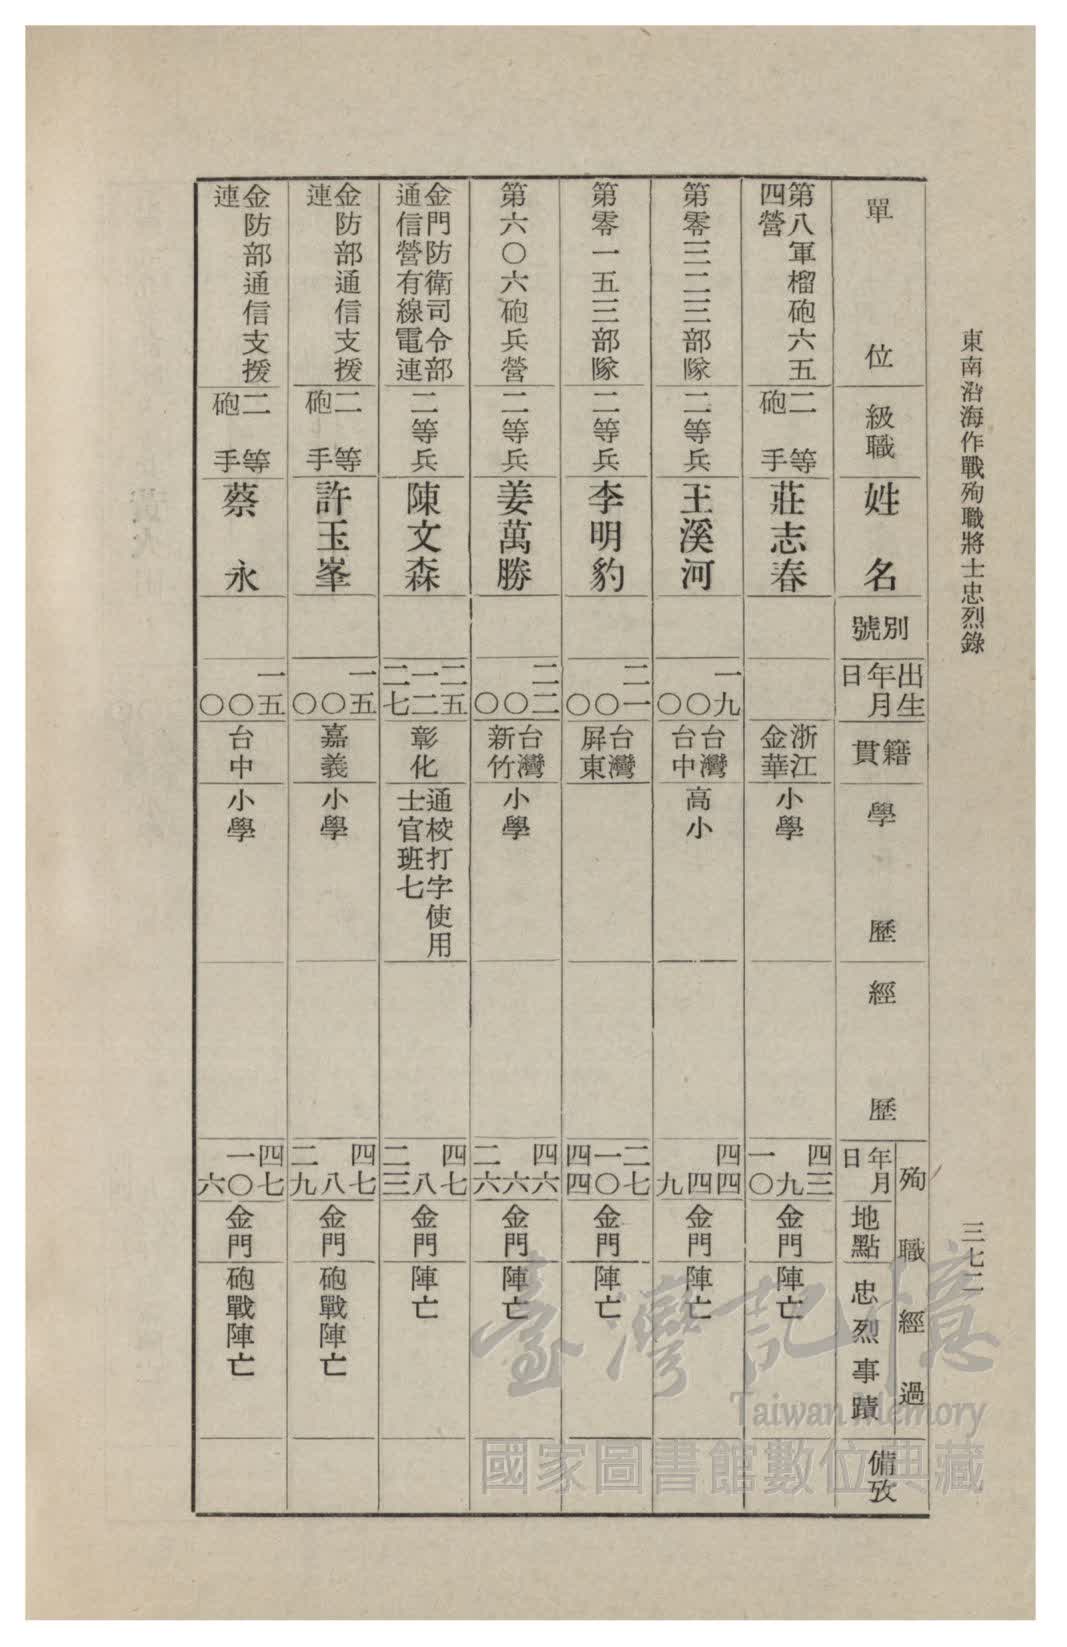 東南沿海作戰殉職將士忠烈錄
三七二
單位
級職
姓名
別號
出生
年月
日
籍貫
學歷
經歷
殉職經過
年月
日
地點
忠烈事蹟
備攷
第八軍榴砲六五
四營
二等
砲手
莊志春
浙江
金華
小學
四三
九
一〇
金門
陣亡
第零三二三部隊
二等兵
王溪河
一九
〇
〇
台灣
台中
高小
四四
四
九
金門
陣亡
第零一五三部隊
二等兵
李明豹
二一
〇
〇
台灣
屏東
二七
一〇
四四
金門
陣亡
第六〇六砲兵營
二等兵
姜萬勝
二二
〇
〇
台灣
新竹
小學
四六
六
二六
金門
陣亡
金門防衛司令部
通信營有線電連
二等兵
陳文森
二五
一二
二七
彰化
通校打字使用
士官班七
四七
八
二三
金門
陣亡
金防部通信支援
連
二等
砲手
許玉峯
一五
〇
〇
嘉義
小學
四七
八
二九
金門
砲戰陣亡
金防部通信支援
連
二等
砲手
蔡永
一五
〇
〇
台中
小學
四七
一〇
六
金門
砲戰陣亡
臺灣記憶
Taiwan Memory
國家圖書館數位典藏